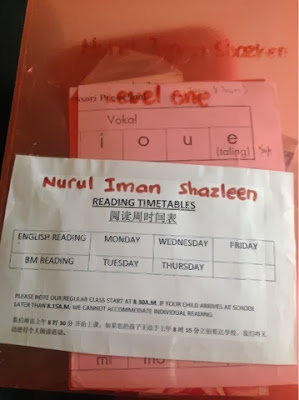 Nurul Iman Shazleen
level one
Vokal
i o u e
(taling)
Nurul Iman Shazleen
READING TIMETABLES
阅读周时间表
ENGLISH READING MONDAY WEDNESDAY FRIDAY
BM READING TUESDAY THURSDAY
PLEASE NOTE OUR REGULAR CLASS START AT 8.30A.M. IF YOUR CHILD ARRIVES AT SCHOOL
LATER THAN 8.15A.M. WE CANNOT ACCOMMODATE INDIVIDUAL READING.
我们将在上午 8 时 30 分开始上课，如果您的孩子无法于上午 8 时 15 分之前抵达学校，我们将无
法进行个人阅读活动。